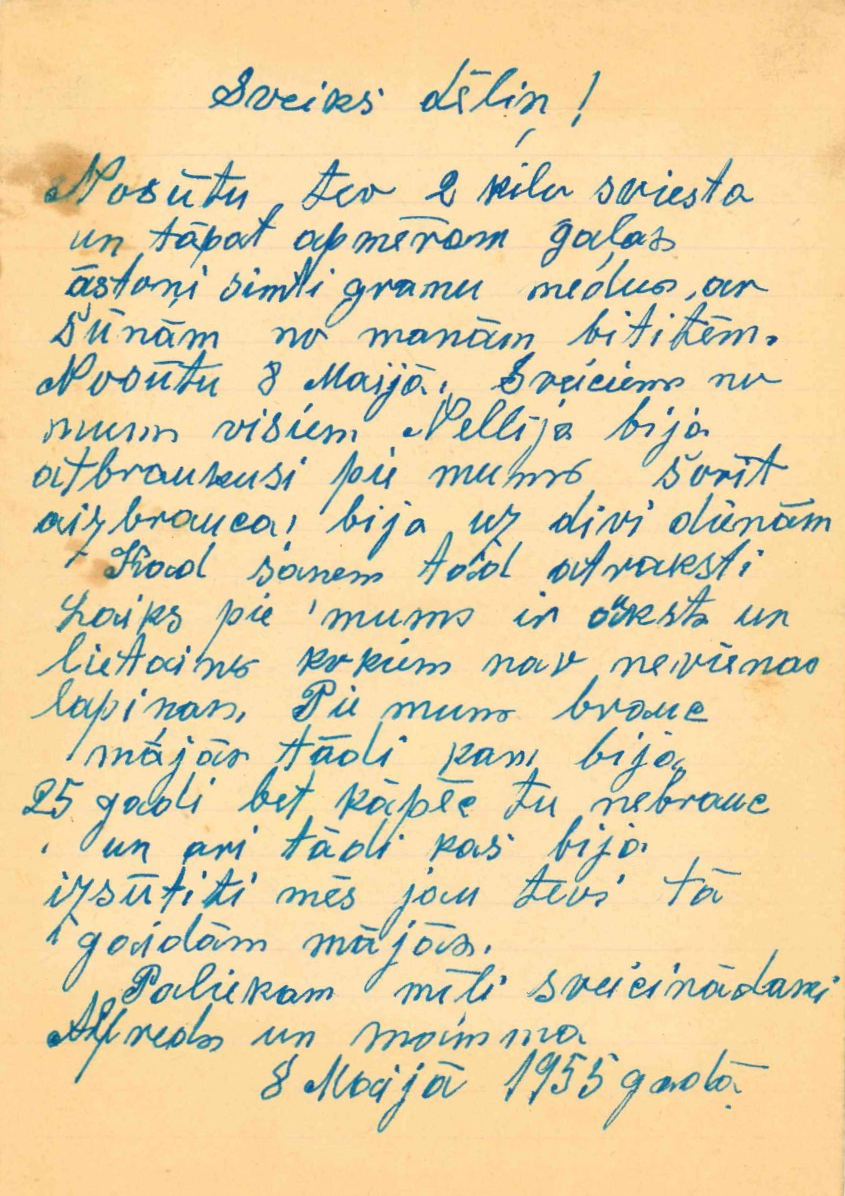 Sveiks dēliņ!
Nosūtu tev 2 kilu sviesta
un tāpat apmēram gaļas
āstoņi simti gramu medus, ar
šūnām no manām bititēm.
Nosūtu 8 Maijā. Sveiciens no
mums visiem Nellija bija
atbraukusi pie mums šorīt
aizbrauca, bija uz divi dienām
Kad saņem tad atraksti
Laiks pie mums ir auksts un
lietains kokiem nav nevienas
lapiņas. Pie mums brauc
mājās tādi kam bija
25 gadi bet kāpēc tu nebrauc
un ari tādi kas bija
izsūtiti mēs jau tevi tā
gaidām mājās.
Paliekam mīļi sveicinādami
Alfreds un mamma
8 Maijā 1955 gadā.